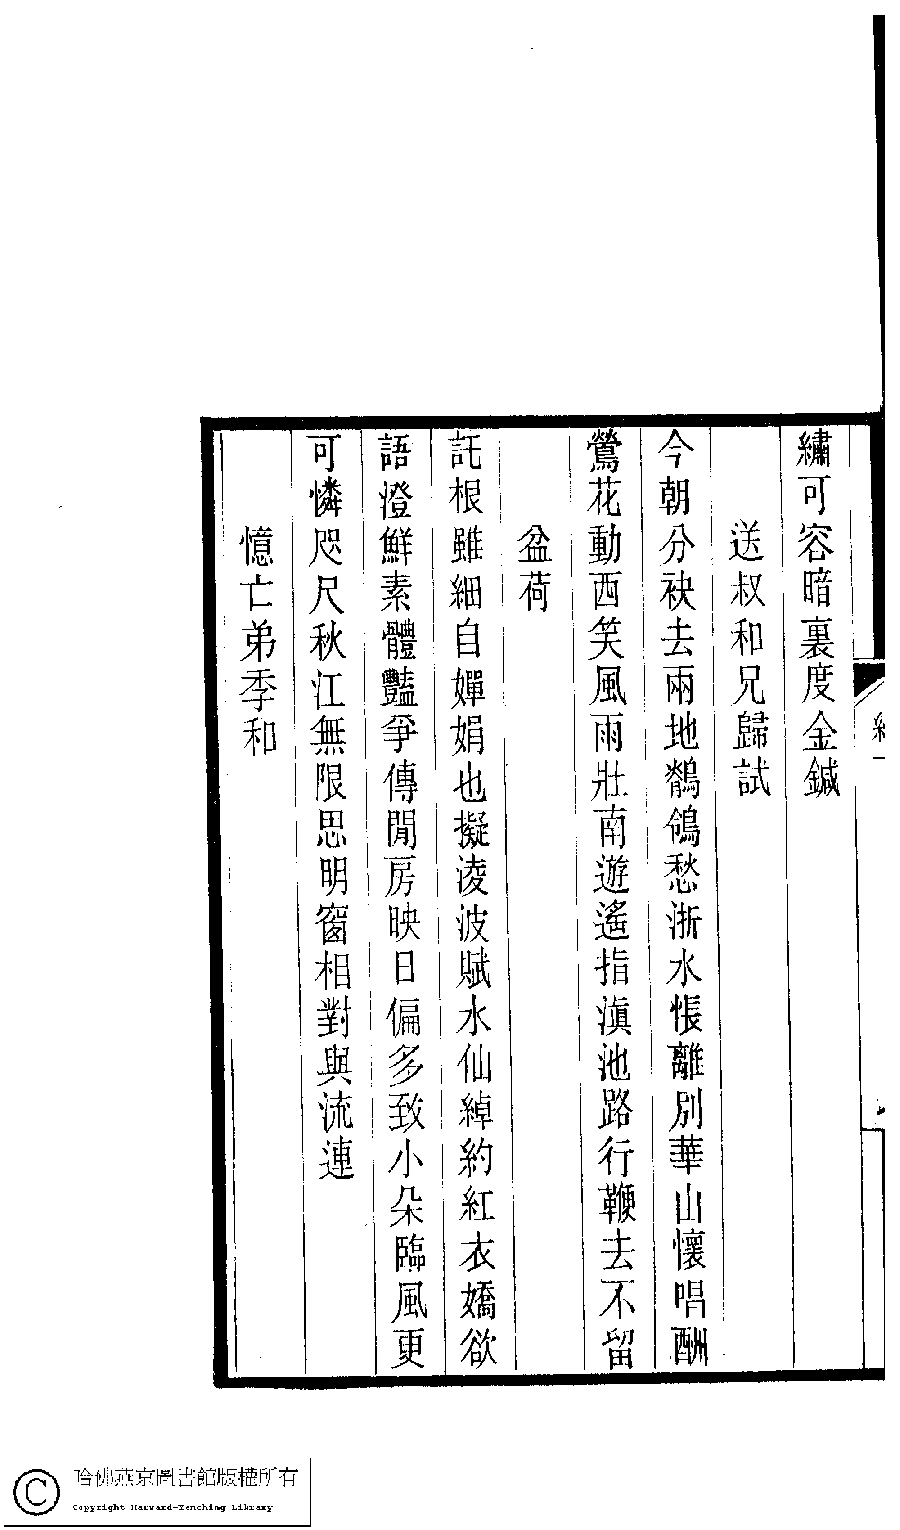 繡可容暗裏度金鍼
送叔和兄歸試
今朝分袂去兩地鶺鴒愁浙水悵離別華山懷唱酬
鶯花動西笑風雨壯南遊遙指滇池路行鞭去不留
盆荷
託根雖細自嬋娟也擬淩波賦水仙綽約紅衣嬌欲
語澄鮮素體豔爭傳閒房映日偏多致小朵臨風更
可憐咫尺秋江無限思明窗相對與流連
憶亡弟季和
哈佛燕京圖書館版權所有
Copyright Harvard-Yenching Library